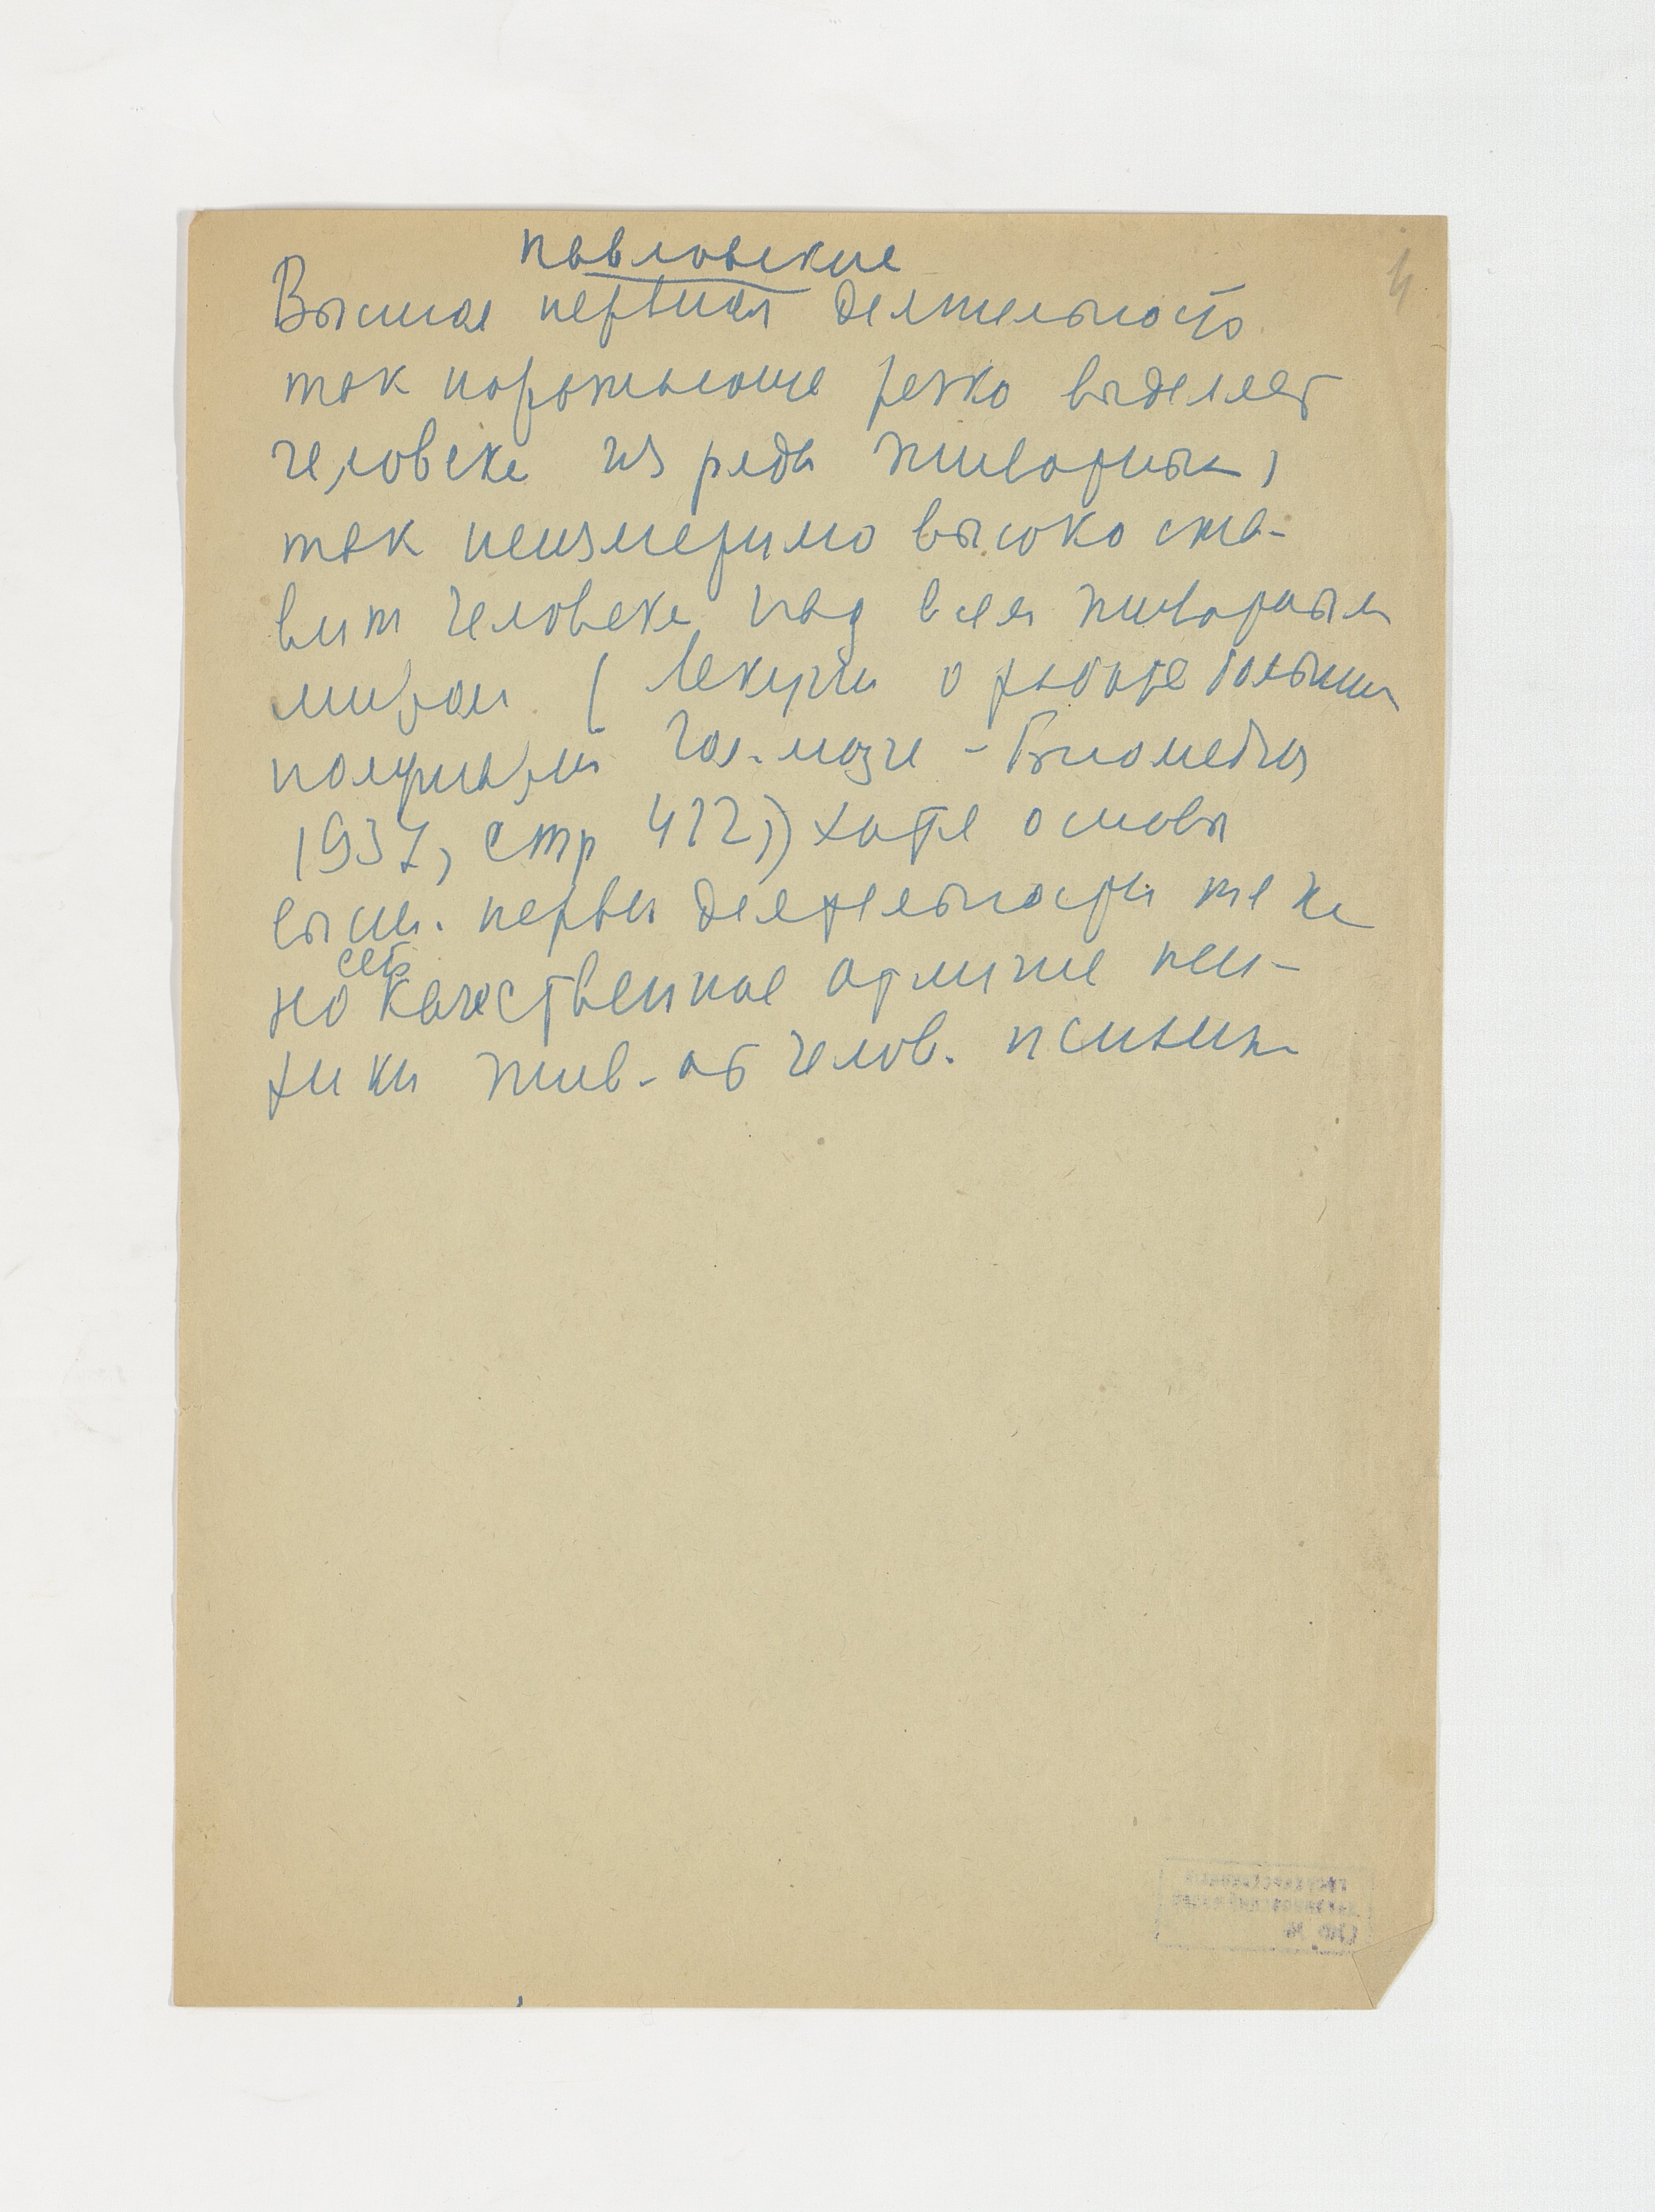 павловские
Высшая нервная деятельность
так поразительно резко выделяет
человека из ряда животных,
так неизмеримо высоко ста-
вит человека над всем животным
миром (Лекции о работе больших
полушарий гол. мозга - Биомедгиз
1937, стр 412,) хотя основы
высш. нервн деятельности те же
но есть качественное отличие пси-
хики жив. от челов.
4